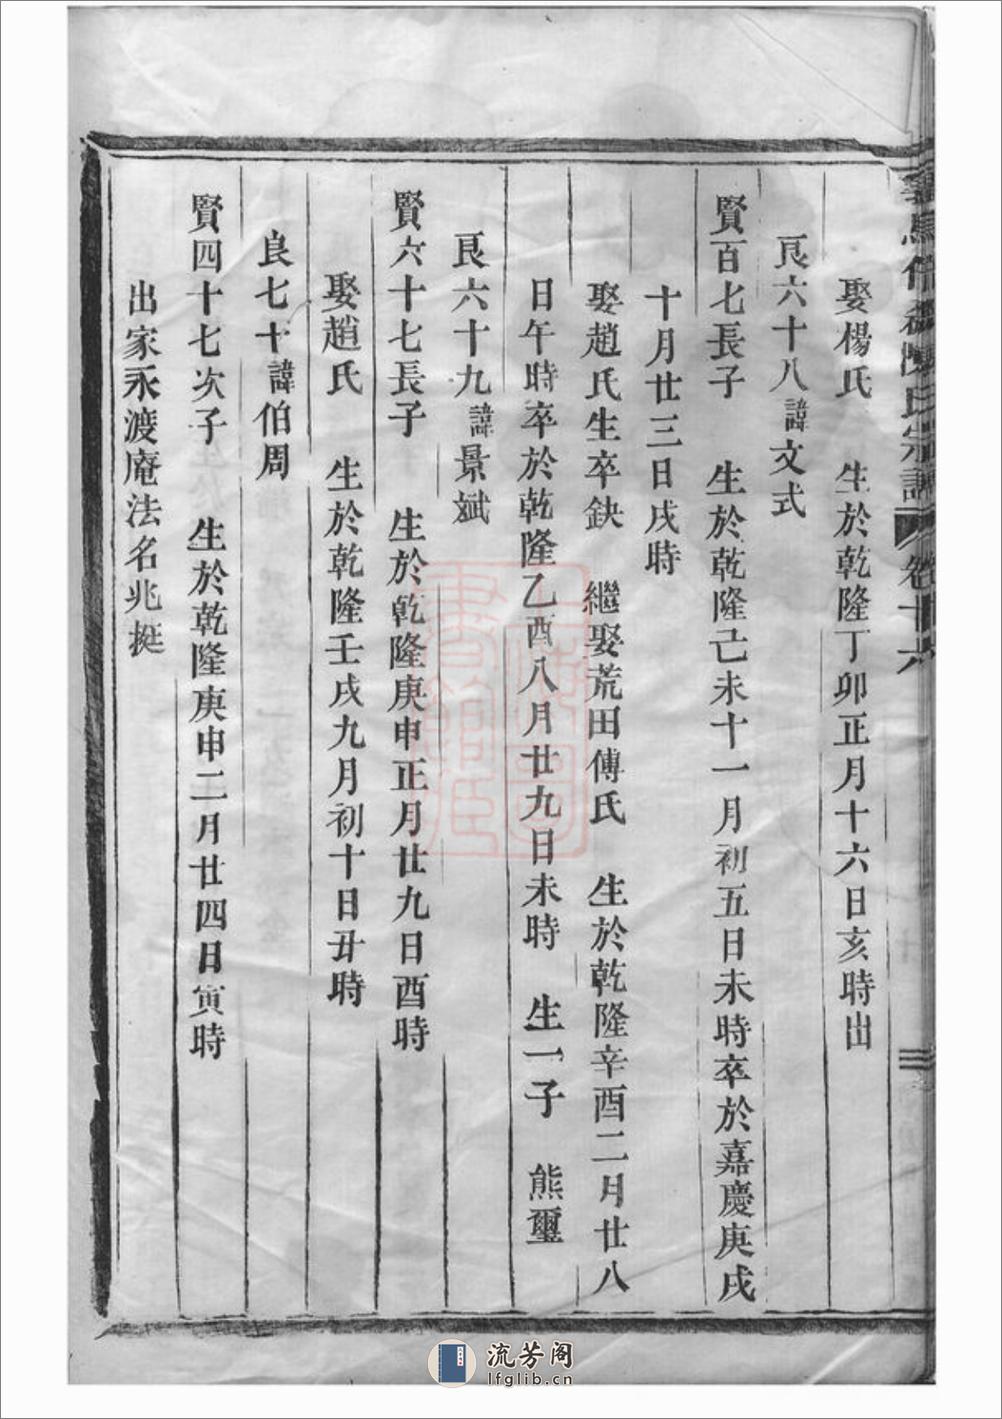 陳氏宗譜 卷十六
娶楊氏 生於乾隆丁卯正月十六日亥時出
良六十八諱文式
賢百七長子 生於乾隆己未十一月初五日未時卒於嘉慶庚戌
十月廿三日戌時
娶趙氏生卒缺 繼娶荒田傅氏 生於乾隆辛酉二月廿八
日午時卒於乾隆乙酉八月廿九日未時 生一子 熊璽
良六十九諱景斌
賢六十七長子 生於乾隆庚申正月廿九日酉時
娶趙氏 生於乾隆壬戌九月初十日丑時
良七十諱伯周
賢四十七次子 生於乾隆庚申二月廿四日寅時
出家永渡庵法名兆挺
上海圖書館藏
流芳阁
lfglib.cn